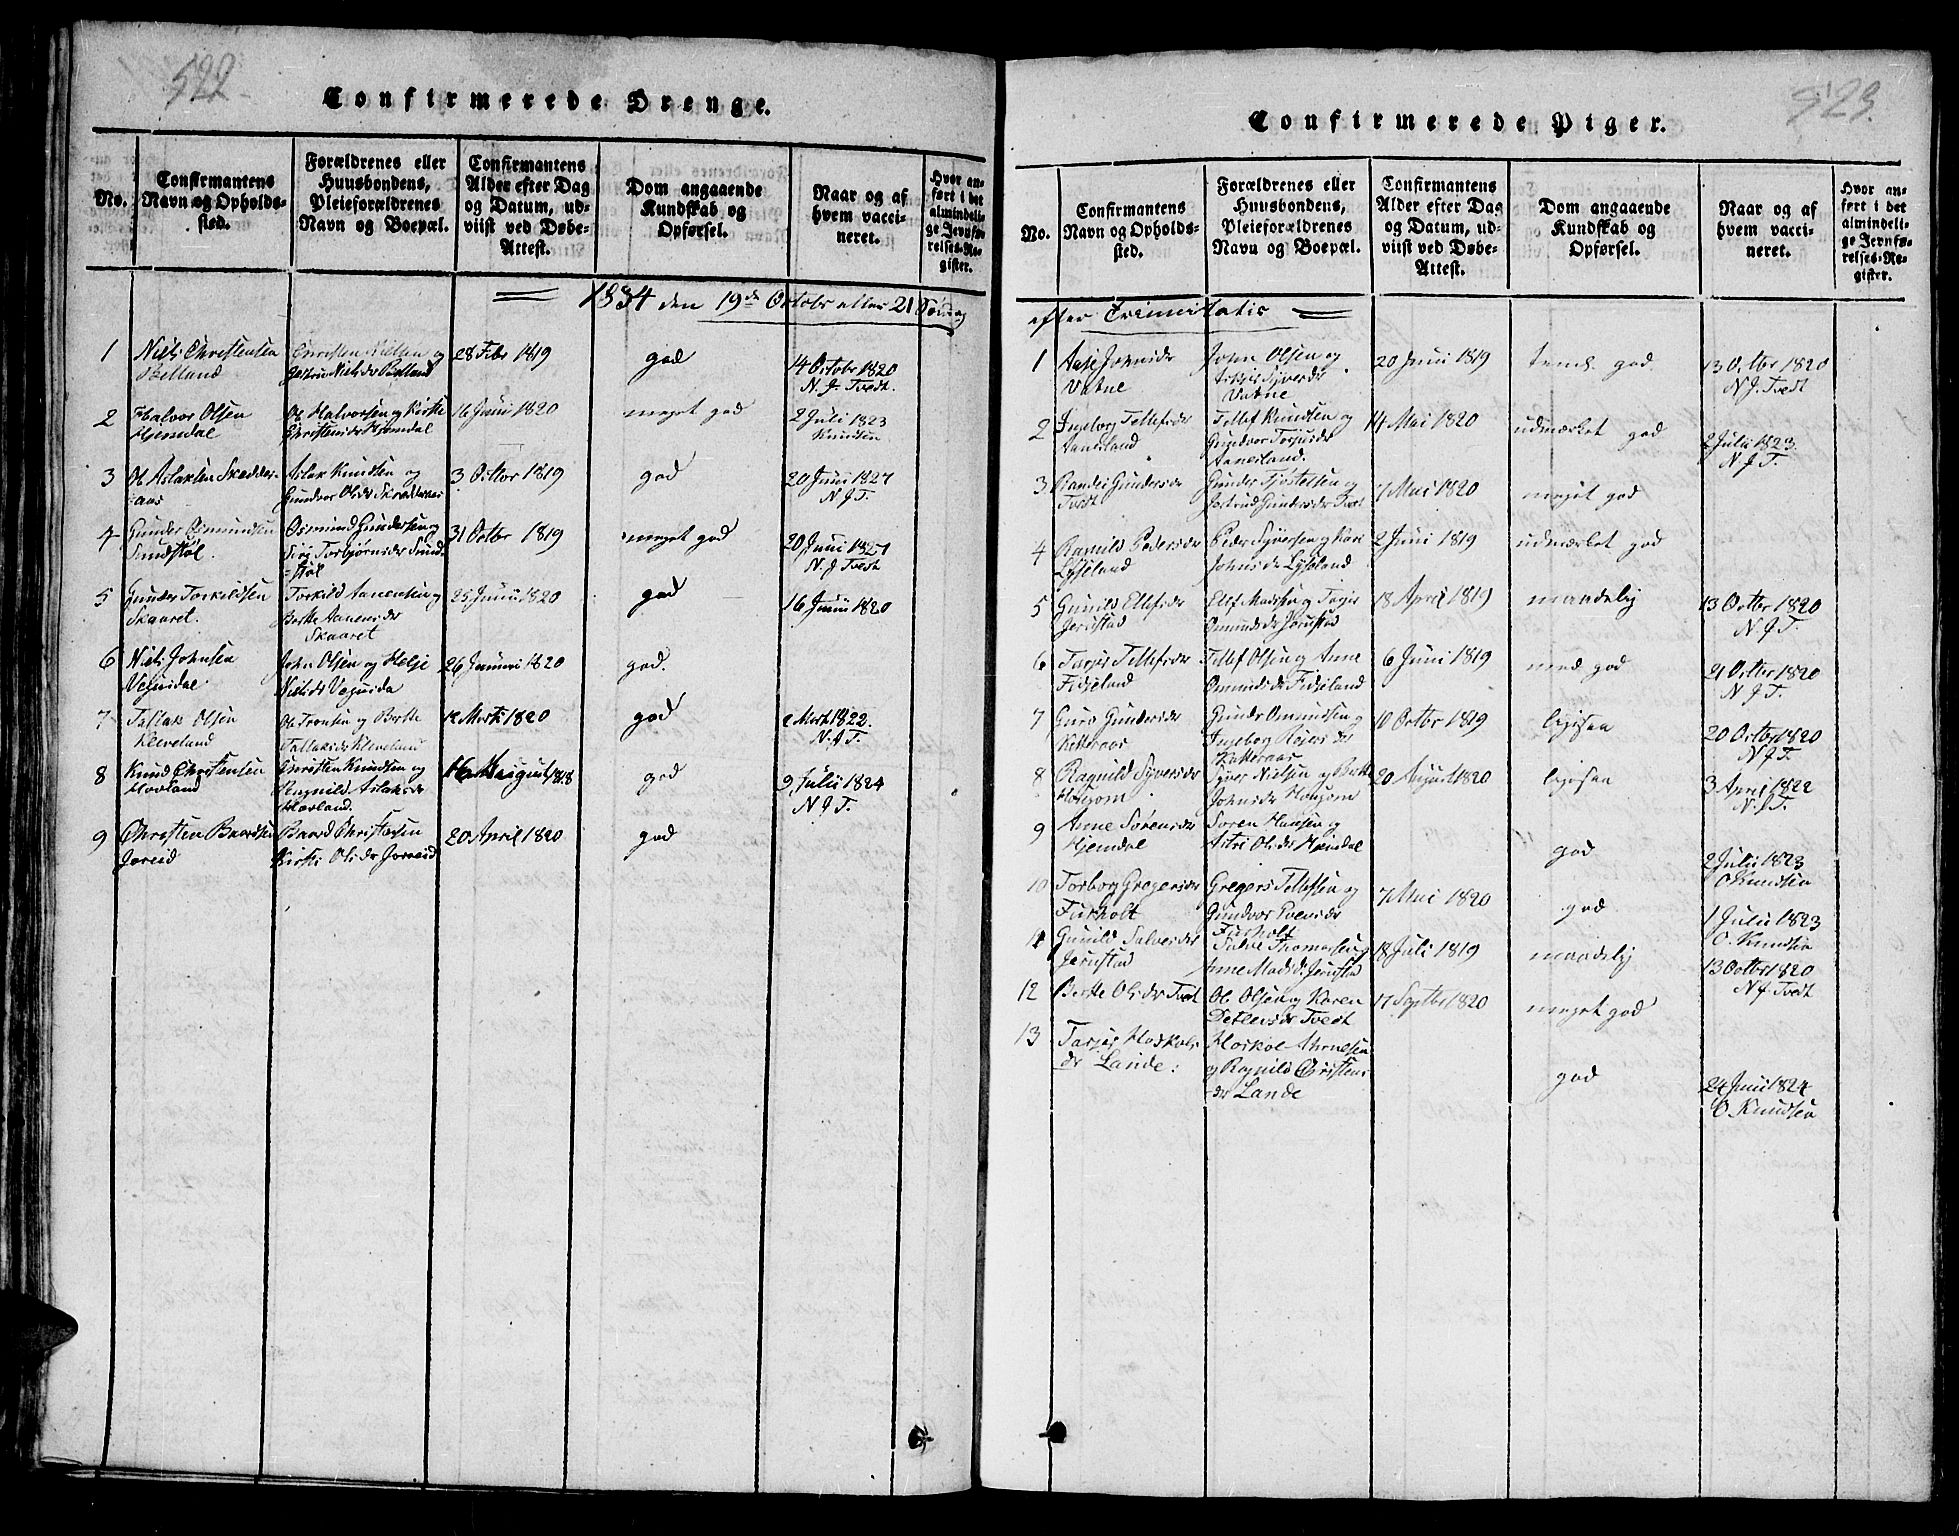 522
Confirmerede Drenge.
No.
Confirmantens
Navn og Opholds-
sted.
Forældrenes eller
Huusbondens,
Pleieforældrenes
Navn og Boepæl.
Confirmantens
Alder efter Dag
og Datum, ud-
viist ved Døbe-
Attest.
Dom angaaende
Kundskab og
Opførsel.
Naar og af
hvem vacci-
neret.
Hvor an-
ført i det
almindeli-
ge Jevnfø-
relses-Re-
gister.
1834 den 19de Octobr eller 21 Søndag
1
Niels Christensen
Christen Nielsen og
Niels
28 Febr 1819
god
14 Octobr 1820
N. J. Tvedt.
2
Halvor Olsen
Hjemdal
Ole Halvorsen og Kirstie
Christensdr Hjemdal
16 Juni 1820
meget god
2 Juli 1823
Knudsen
3
Ol. Aslaksen Skeddes-
aas
Aslak Knudsen og
Gundvor Olsdr
3 Octbr 1819
god
20 Juni 1827
N. J. T.
4
Gunder Osmundsen
Sundstøl.
Osmund Gundersen og
Siri Torbjørnsdr Sund
-støl
31 Octbr 1819
meget god
20 Juni 1827
N. J. Tvedt
5
Gunder Torkildsen
Skaaret.
Torkild Aanensen og
Berthe Aanensdr
Skaaret
25 Juni 1820
god
16 Juni 1820
6
Niels Johnsen
Vegusdal
John Olsen og Helje
Nielsdr Vegusda
26 Januari 1820
god.
7
Tallak Olsen
Kleveland
Ole Tronsen og Berthe
Tallaksdr Kleveland
12 Marti 1820
god
2 Mart 1822.
N. J. T.
8
Knud Christensen
Hovland
Christen Knudsen og
Aslaksdr
Hovland.
16 August 1818
god
9 Julii 1824
N. J. T.
9
Christen Baardsen
Joreid
Baard Christensen
Kirsti Olsdr Joreeid
20 April 1820
god
523.
Confirmerede Piger.
No.
Confirmantens
Navn og Opholds-
sted.
Forældrenes eller
Huusbondens,
Pleieforældrenes
Navn og Boepæl.
Confirmantens
Alder efter Dag
og Datum, ud-
viist ved Døbe-
Attest.
Dom angaaende
Kundskab og
Opførsel.
Naar og af
hvem vacci-
neret.
Hvor an-
ført i det
almindeli-
ge Jevnfø-
relses-Re-
gister.
efter Trinitatis
1
Johnsdr
Vatne
John Olsen og
Syversdr
Vatne
20 Juni 1819
god
13 Octbr 1820
N. J. Tvedt
2
Ingeborg Tellefsdr
Aanesland
Tellef Knudsen og
Gundvor Torjusdr
Aanesland.
14 Mai 1820
udmærket god
2 Julii 1823.
N J T.
3
Randei Gundersdr
Tvedt
Gunder Tjøstelsen og
Jostrud Gundersdr Tvedt
7 Mai 1820
meget god
4
Ragnild Pedersdr
Lysland
Peder Syversen og Kari
Johnsdr Lyseland
2 Juni 1819
udmærket god
5
Gunild Ellefsdr
Jerustad
Ellef Madsen og Torjer
Omundsdr Jerustad
18 April 1819
maadelig
13 Octbr 1820
N. J T.
6
Torjer Tellefsdr
Fidjeland
Tellef Olsen og Anne
Omundsdr Fidjeland
6 Juni 1819
god
21 Octbr 1820
N. J T.
7
Guro Gundersdr
Ketteraas
Gunder Omundsen og
Ingebor Reiersdr
Ketteraas
10 Octbr 1819
ligesaa
20 Octbr 1820
N J T.
8
Ragnild Syversdr
Haugom
Syver Nielsen og Berthe
Johnsdr Haugom
20 August 1820
ligesaa
3 April 1822
N. J T.
9
Anne Sørensdr
Hjemdal
Søren Hansen og
Astri Olsdr Hjemdal
god
2 Julii 1823
O Knudsen
10
Torborg Gregersdr
Furholt
Gregers Tellefsen og
Gundvor Evensdr
Furholt
7 Mai 1820
god
1 Julii 1823
O. Knudsen
11
Gunild Salvesdr
Jerustad
Salve Thomassen og
Anne Madsdr Jerustad
18 Juli 1819
maadelig
13 Octbr 1820
N. J. Tvedt
12
Berthe Olsdr Tvedt
Ole Olsen og Karen
Detlevsdr Tvedt
17 Septbr 1820
meget god
13
Torjer Hoskols
dr Lande:
Hoskol Arnesen
og Ragnild Christens
dr Lande
god
24 Juni 1824
O. Knudsen